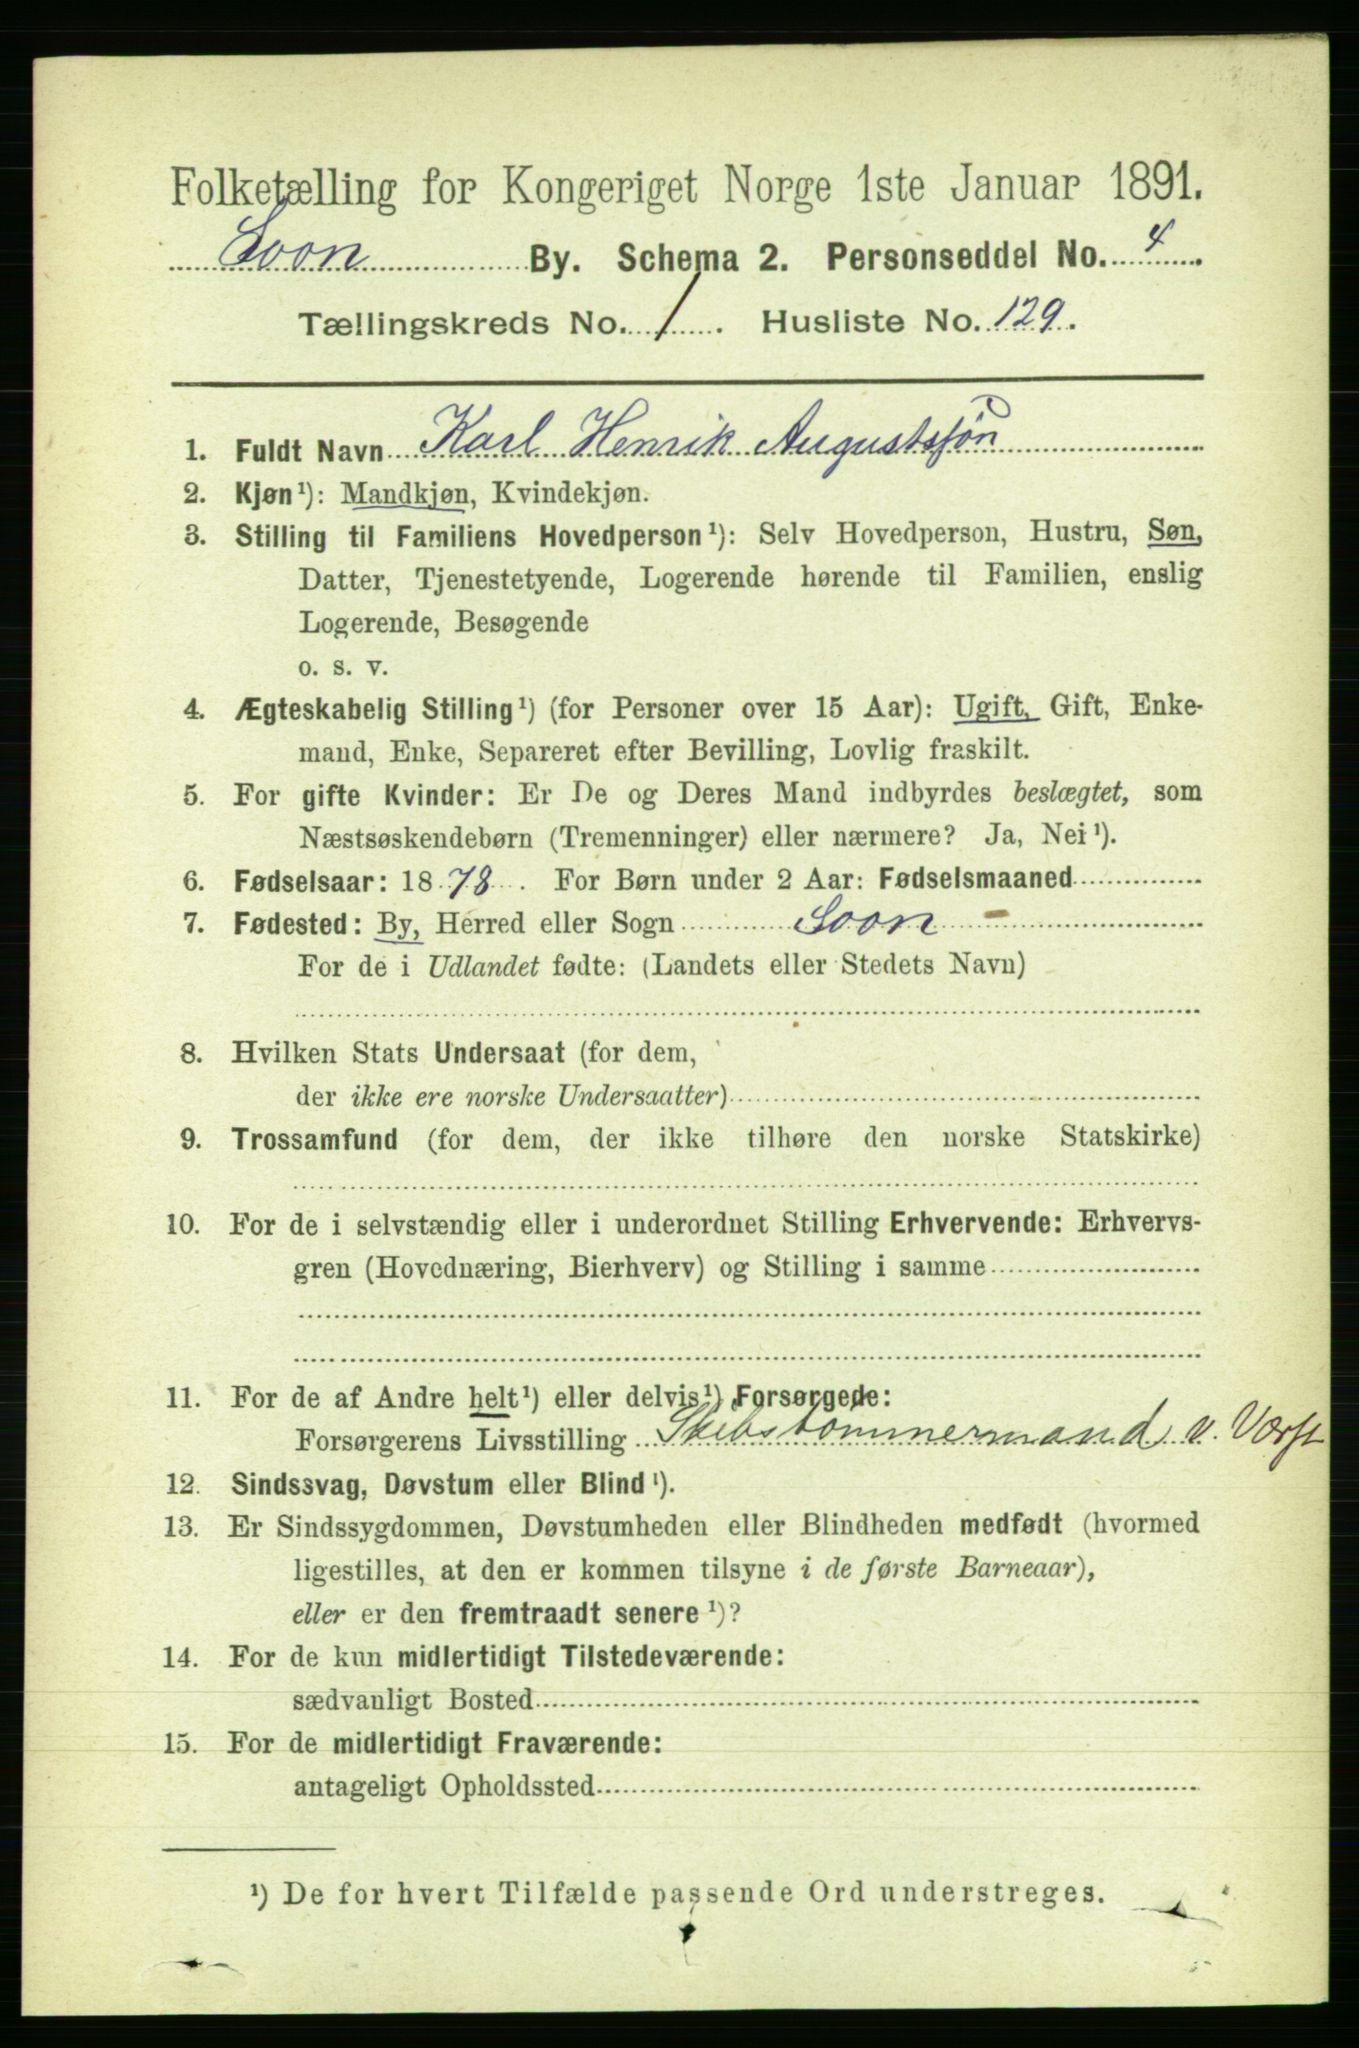 Folketælling for Kongeriget Norge 1ste Januar 1891.
Soon By. Schema 2. Personseddel No. 4
Tællingskreds No. 1. Husliste No. 129.
1. Fuldt Navn Karl Henrik Augustsøn
2. Kjøn¹): Mandkjøn, Kvindekjøn.
3. Stilling til Familiens Hovedperson¹): Selv Hovedperson, Hustru, Søn,
Datter, Tjenestetyende, Logerende hørende til Familien, enslig
Logerende, Besøgende
o. s. v.
4. Ægteskabelig Stilling¹) (for Personer over 15 Aar): Ugift, Gift, Enke-
mand, Enke, Separeret efter Bevilling, Lovlig fraskilt.
5. For gifte Kvinder: Er De og Deres Mand indbyrdes beslægtet, som
Næstsøskendebørn (Tremenninger) eller nærmere? Ja, Nei¹).
6. Fødselsaar: 1878. For Børn under 2 Aar: Fødselsmaaned
7. Fødested: By, Herred eller Sogn Soon
For de i Udlandet fødte: (Landets eller Stedets Navn)
8. Hvilken Stats Undersaat (for dem,
der ikke ere norske Undersaatter)
9. Trossamfund (for dem, der ikke tilhøre den norske Statskirke)
10. For de i selvstændig eller i underordnet Stilling Erhvervende: Erhvervs-
gren (Hovednæring, Bierhverv) og Stilling i samme
11. For de af Andre helt¹) eller delvis¹) Forsørgede:
Forsørgerens Livsstilling Skibstømmermand v. Værft
12. Sindssvag, Døvstum eller Blind¹).
13. Er Sindssygdommen, Døvstumheden eller Blindheden medfødt (hvormed
ligestilles, at den er kommen tilsyne i de første Barneaar),
eller er den fremtraadt senere¹)?
14. For de kun midlertidigt Tilstedeværende:
sædvanligt Bosted
15. For de midlertidigt Fraværende:
antageligt Opholdssted
¹) De for hvert Tilfælde passende Ord understreges.